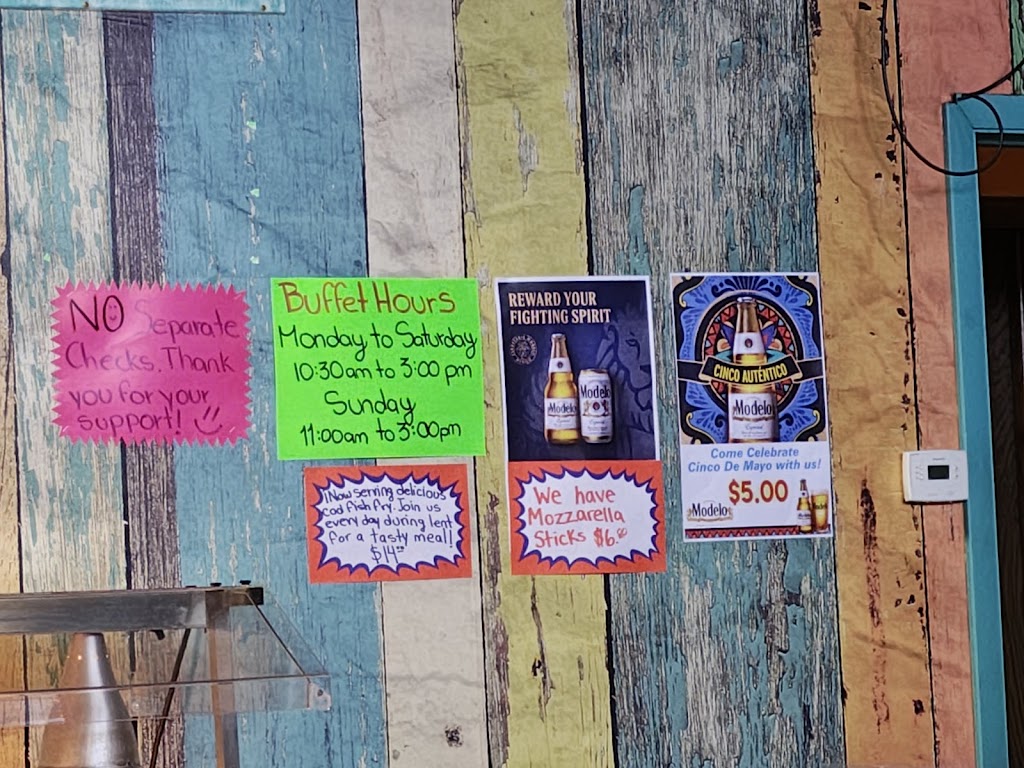 NO Separate
Checks. Thank
you for your
support!
Buffet Hours
Monday to Saturday
10:30am to 3:00 pm
Sunday
11:00am to 3:00pm
¡Now serving delicious
cod fish fry. Join us
every day during lent
for a tasty meal!
$14
REWARD YOUR
FIGHTING SPIRIT
Modelo
Modelo
We have
Mozzarella
Sticks $6.00
CINCO AUTÉNTICO
Modelo
Especial
Come Celebrate
Cinco De Mayo with us!
$5.00
Modelo